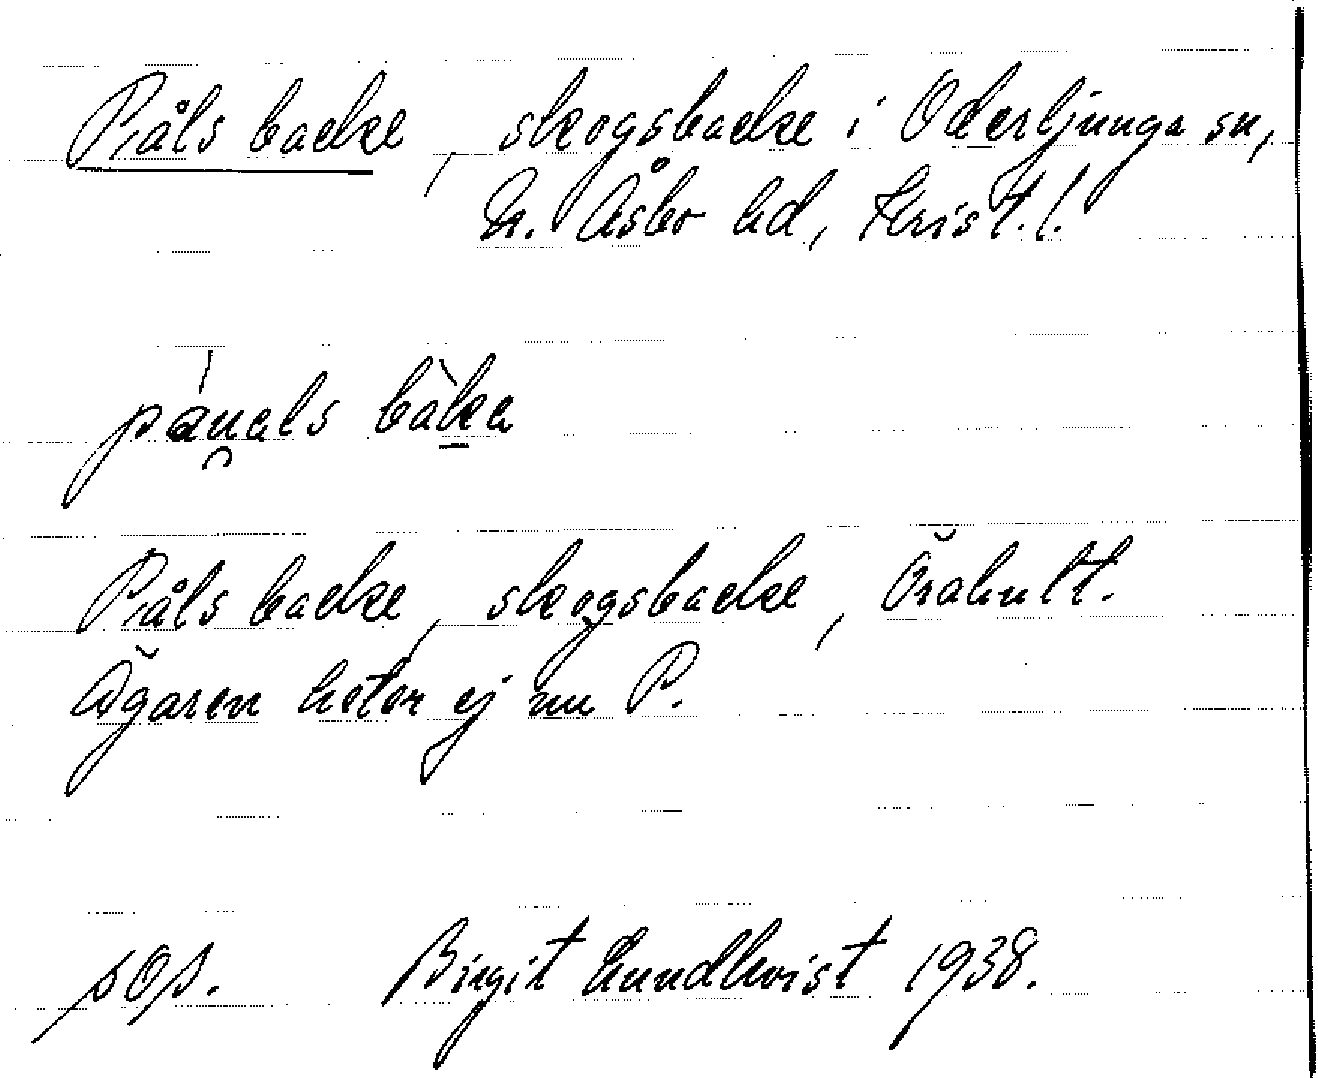 Påls backe, skogsbacke i Oderljunga sn,
N. Åsbo hd, Krist. l.
Påls backe, skogsbacke, Örahult.
Ägaren heter ej nu P.
sOp. Birgit Lundkvist 1938.